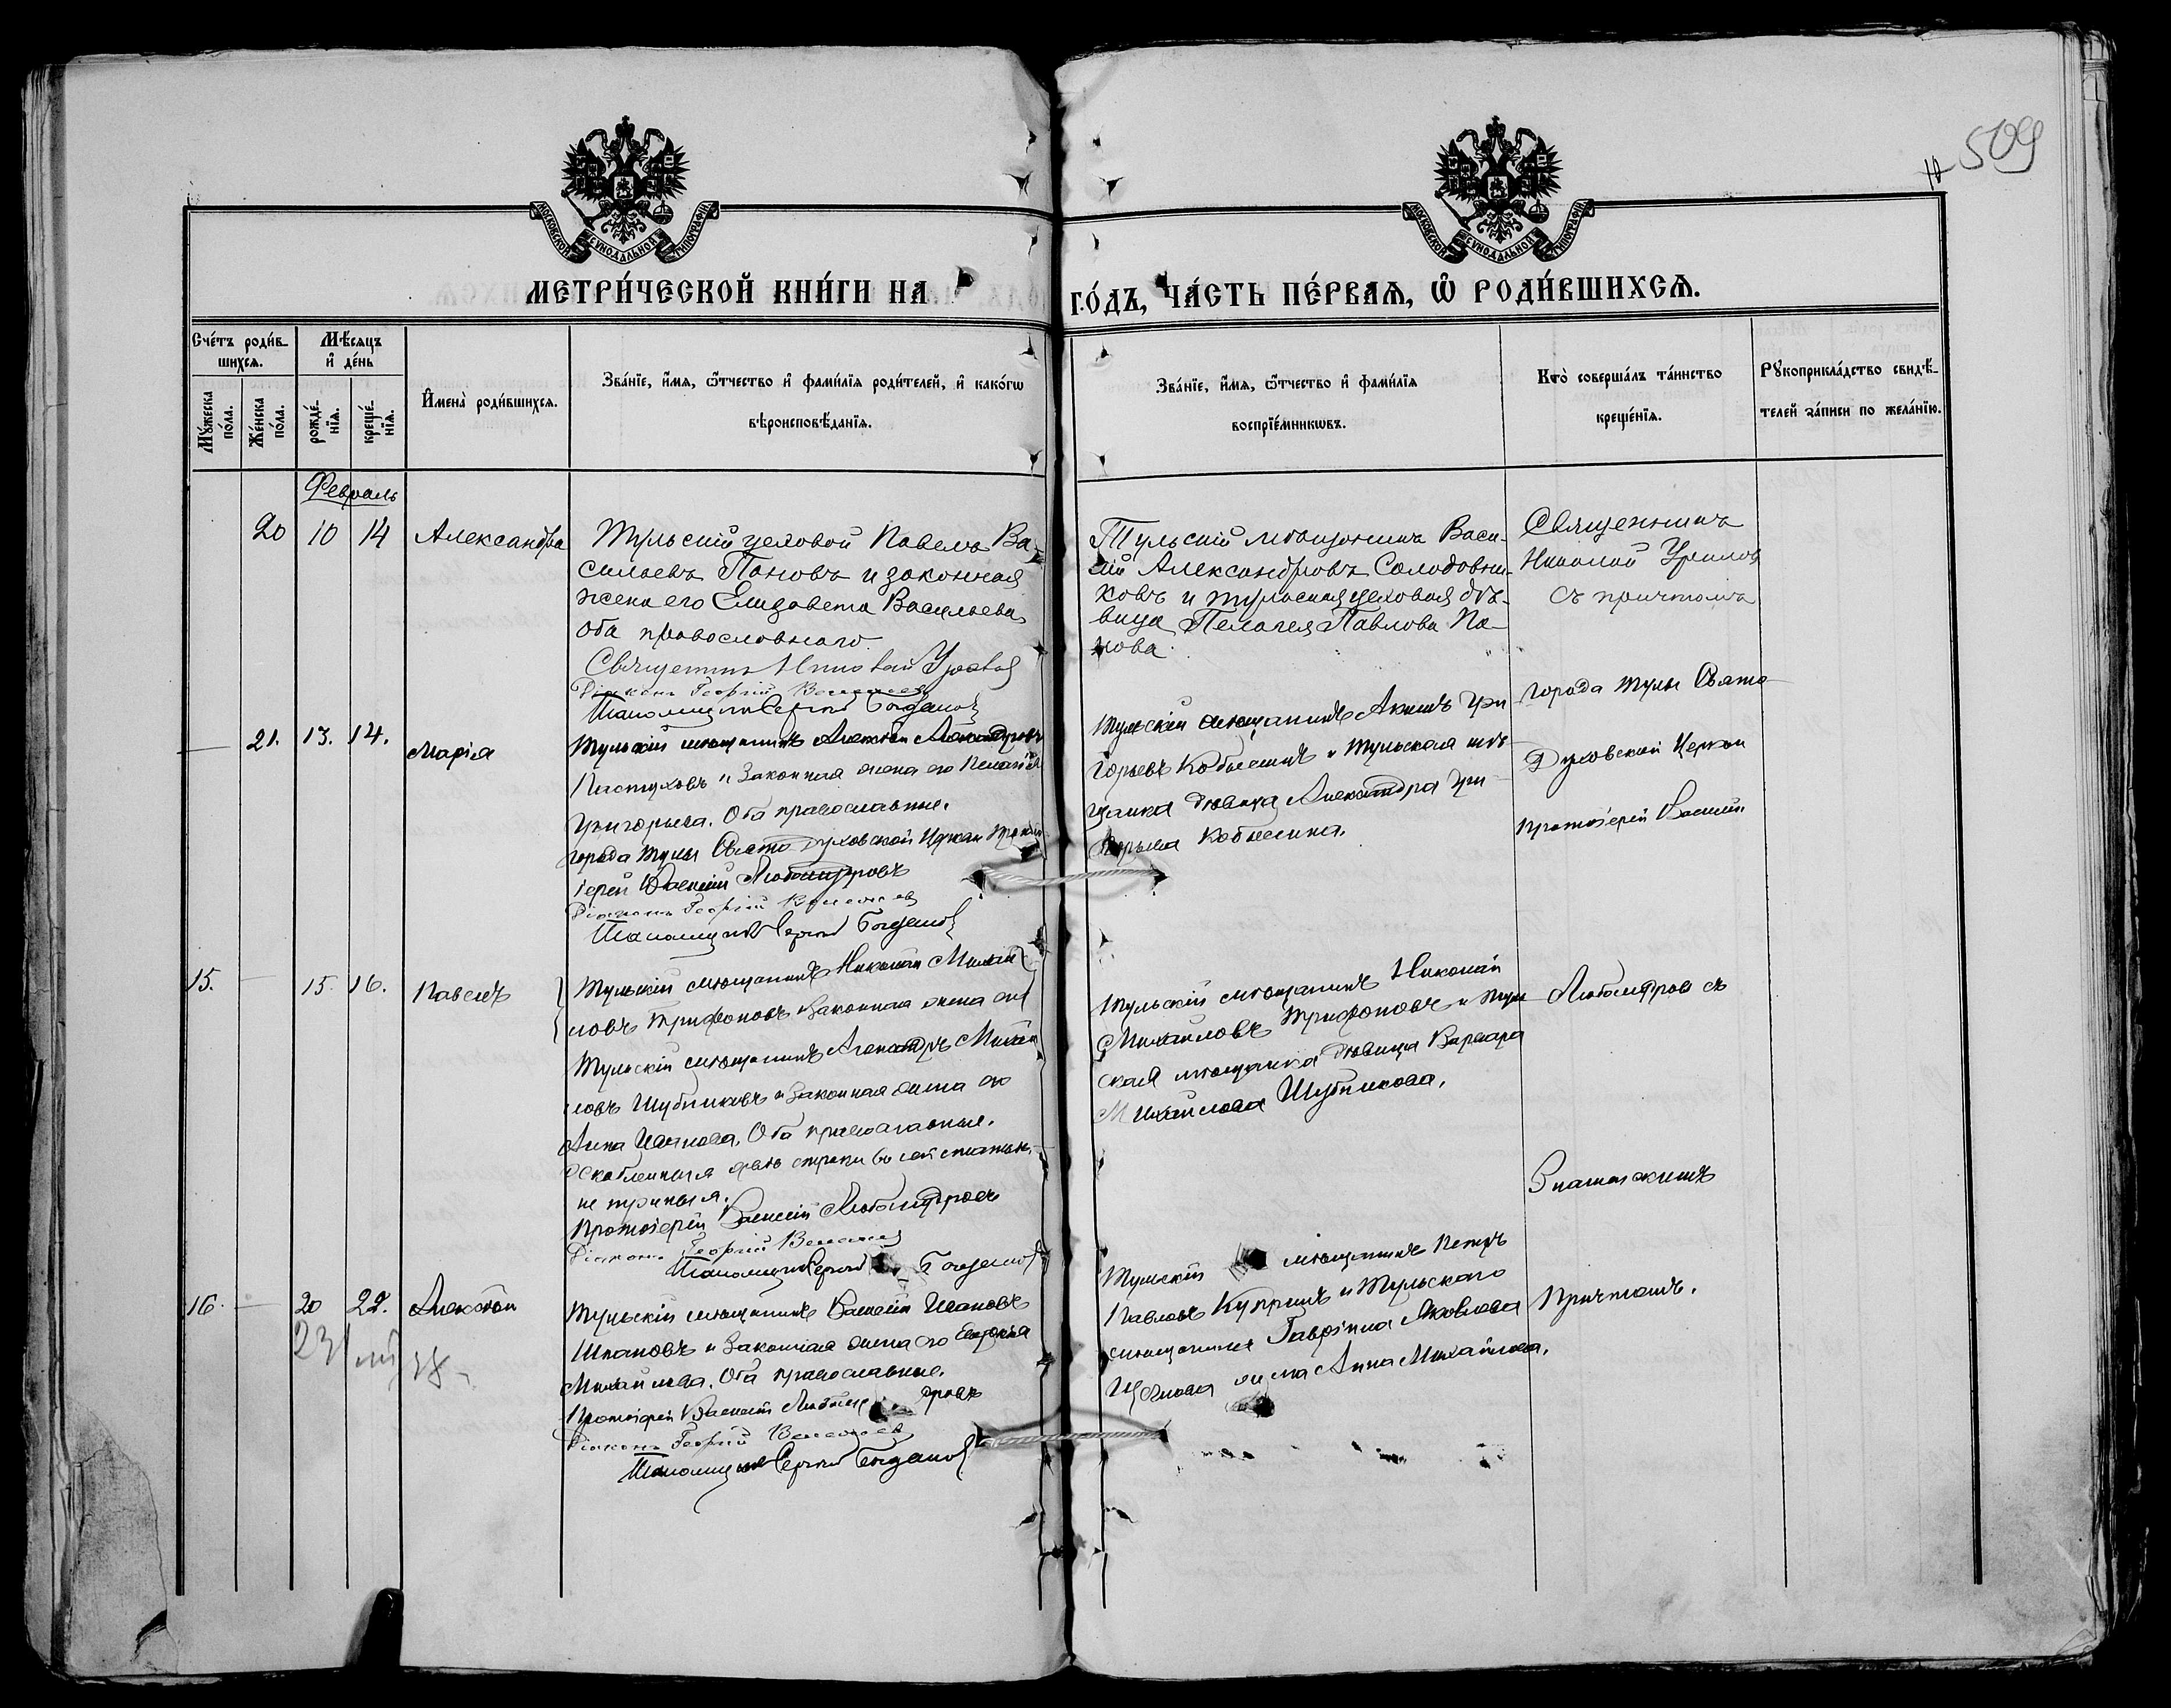 509
МОСКОВСКОЙ СѴНОДАЛЬНОЙ ТИПОГРАФІИ
МОСКОВСКОЙ СѴНОДАЛЬНОЙ ТИПОГРАФІИ
МЕТРИ́ЧЕСКОЙ КНИ́ГИ НА
ГО́ДЪ, ЧА́СТЬ ПЕ́РВАѦ, Ѽ РОДИ́ВШИХСѦ.
Сче́тъ роди́в-
шихсѧ.
Мѣ́сѧцъ
и҆ де́нь
Мꙋ́жеска
по́ла.
Же́нска
по́ла.
рожде́-
нїѧ.
креще́-
нїѧ.
И҆мена̀ роди́вшихсѧ.
Зва́нїе, и҆́мѧ, ѻ҆́тчество и҆ фами́лїѧ роди́телей, и҆ како́гѡ
вѣроисповѣ́данїѧ.
Зва́нїе, и҆́мѧ, ѻ҆́тчество и҆ фами́лїѧ
воспрїе́мникѡвъ.
Кто̀ соверша́лъ та́инство
креще́нїѧ.
Рꙋкоприкла́дство свидѣ́-
телей за́писи по жела́нїю.
Февраль
20 10 14 Александра
Тульскій цеховой Павелъ Ва-
сильевъ Пановъ и законная
жена его Елизавета Васильева,
оба православнаго.
Священникъ Николай
Діаконъ Георгій
Псаломщикъ Сергій Богданов
Тульскій мѣщанинъ Васи-
лій Александровъ Солодовни-
ковъ и тульская цеховая дѣ-
вица Пелагея Павлова Па-
нова.
Священникъ
Николай
съ причтомъ
21. 13. 14. Марія
Тульскій мѣщанинъ Алексѣй Александровъ
Пастуховъ и Законная жена его Пелагія
Григорьева. Оба православные.
города Тулы Свято Духовской Церкви Прото-
іерей Василій Любомудровъ
Діаконъ Георгій
Псаломщикъ Сергій Богданов
Тульскій мѣщанинъ Акимъ Гри
горьевъ Кобылинъ и Тульская мѣ
щанка дѣвица Александра Гри-
горьева Кобылина.
города Тулы Свято
Духовской Церкви
Протоіерей Василій
15. 15. 16. Павелъ
Тульскій мѣщанинъ Николай Михай
ловъ Трифоновъ Законная жена его
Тульскій мѣщанинъ Александръ Михай
ловъ Шубниковъ и Законная жена его
Анна Иванова. Оба православные.
Оскобленныя двѣ строки во сей статьи,
не нужныя.
Протоіерей Василій Любомудровъ
Діаконъ Георгій
Псаломщикъ Сергій Богданов
Тульскій мѣщанинъ Николай
Михайловъ Трифоновъ и Туль
ская мѣщанка дѣвица Варвара
Михайлова Шубникова.
Любомудров съ
16. 20 22. Алексѣй
23
Тульскій мѣщанинъ Василій Ивановъ
и Законная жена его Евдокія
Михайлова. Оба православные.
Протоіерей Василій Любомудровъ
Діаконъ Георгій
Псаломщикъ Сергій Богданов
Тульскій мѣщанинъ Петръ
Павловъ Купринъ и Тульскаго
мѣщанина Гавріила Яковлева
жена Анна Михайлова.
Причтомъ.